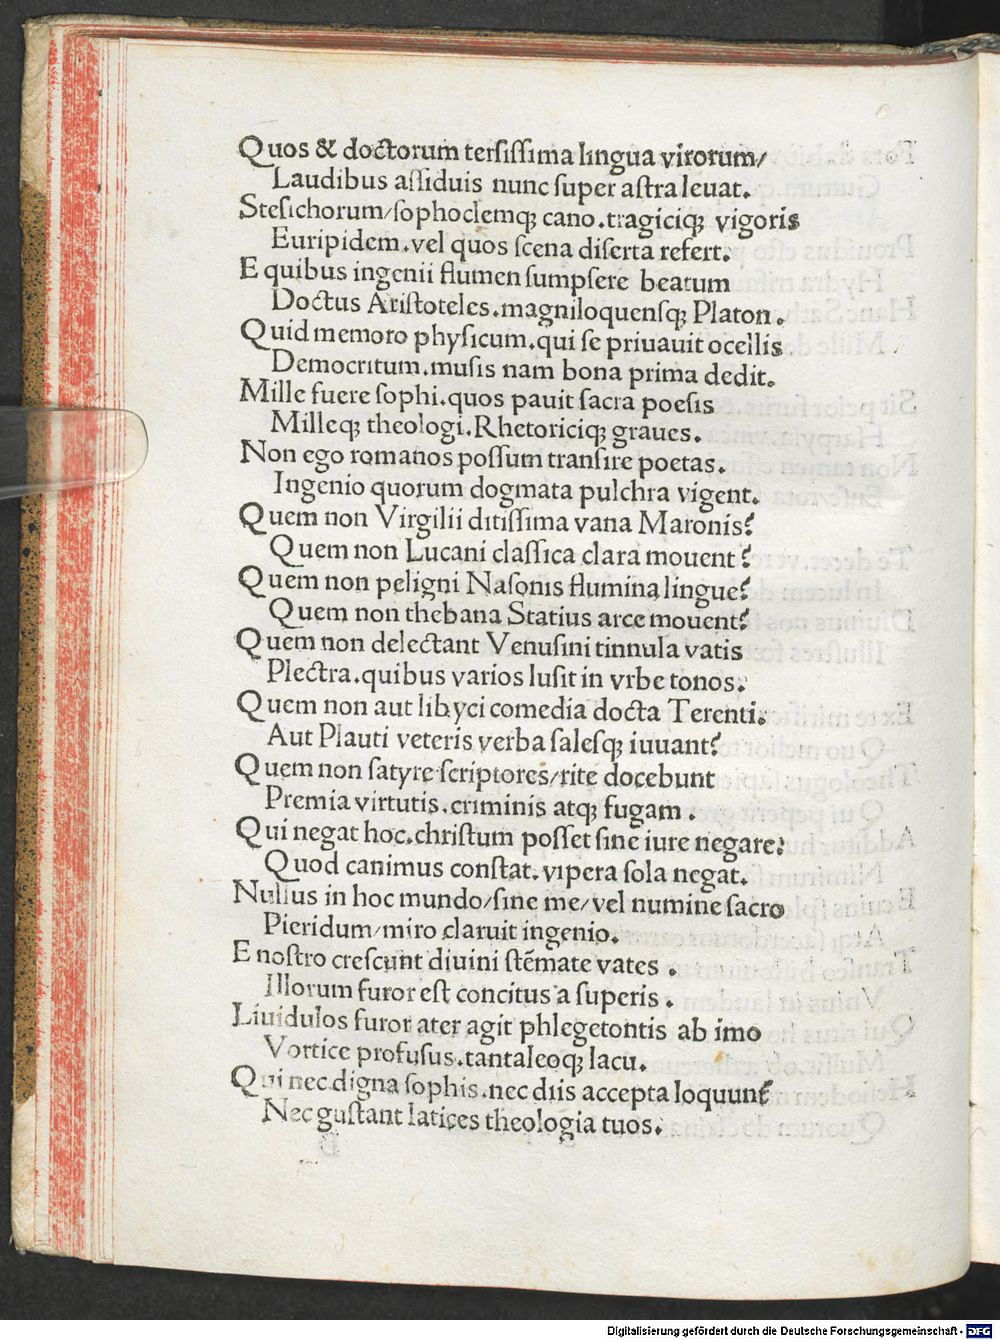 Quos & doctorum tersissima lingua virorum/
Laudibus assiduis nunc super astra leuat.
Stesichorum/sophoclemqꝫ cano.tragiciqꝫ vigoris
Euripidem.vel quos scena diserta refert.
E quibus ingenii flumen sumpsere beatum
Doctus Aristoteles.magniloquensqꝫ Platon.
Quid memoro physicum.qui se priuauit ocellis
Democritum.musis nam bona prima dedit.
Mille fuere sophi.quos pauit sacra poesis
Milleqꝫ theologi.Rhetoriciqꝫ graues.
Non ego romanos possum transire poetas.
Ingenio quorum dogmata pulchra vigent.
Quem non Virgilii ditissima vana Maronis?
Quem non Lucani classica clara mouent?
Quem non peligni Nasonis flumina lingue?
Quem non thebana Statius arce mouent?
Quem non delectant Venusini tinnula vatis
Plectra.quibus varios lusit in vrbe tonos.
Quem non aut libyci comedia docta Terenti.
Aut Plauti veteris verba salesqꝫ iuuant?
Quem non satyre scriptores/rite docebunt
Premia virtutis.criminis atqꝫ fugam.
Qui negat hoc.christum posset sine iure negare?
Quod canimus constat.vipera sola negat.
Nullus in hoc mundo/sine me/vel numine sacro
Pieridum/miro claruit ingenio.
E nostro crescunt diuini stēmate vates.
Illorum furor est concitus a superis.
Liuidulos furor ater agit phlegetontis ab imo
Vortice profusus.tantaleoqꝫ lacu.
Qui nec digna sophis.nec diis accepta loquunt᷑
Nec gustant latices theologia tuos.
Digitalisierung gefördert durch die Deutsche Forschungsgemeinschaft - DFG